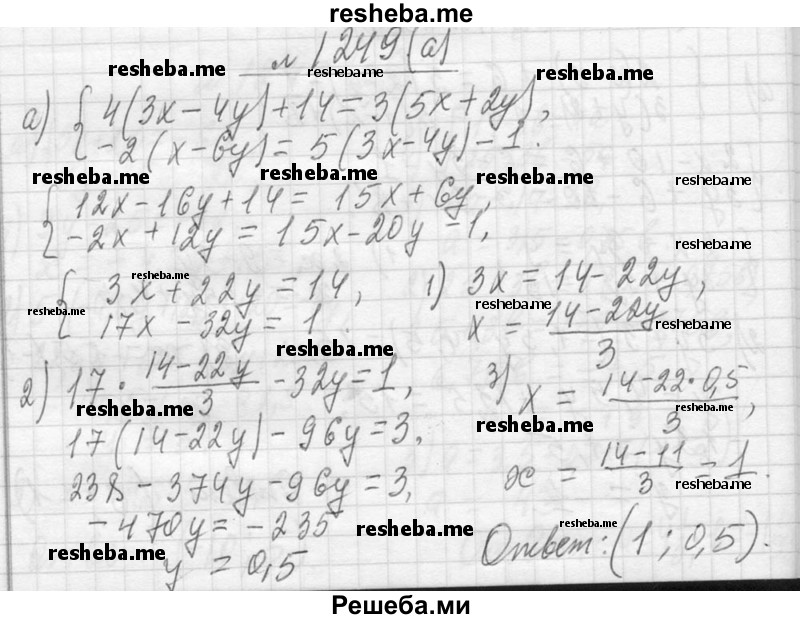 resheba.me
№ 1249(а)
resheba.me resheba.me resheba.me
а) { 4(3x-4y)+14=3(5x+2y),
-2(x-6y)=5(3x-4y)-1.
resheba.me resheba.me resheba.me
{ 12x-16y+14=15x+6y,
-2x+12y=15x-20y-1,
resheba.me
resheba.me
{ 3x+22y=14,
17x-32y=1.
resheba.me
1) 3x=14-22y,
resheba.me
x = \frac{14-22y}{3}.
resheba.me
resheba.me
2) 17·\frac{14-22y}{3}-32y=1,
resheba.me
17(14-22y)-96y=3,
238-374y-96y=3,
-470y=-235
resheba.me
y=0,5
resheba.me
3) x = \frac{14-22·0,5}{3},
resheba.me
resheba.me
x = \frac{14-11}{3} = 1.
resheba.me
resheba.me
Ответ: (1; 0,5).
Решеба.ми